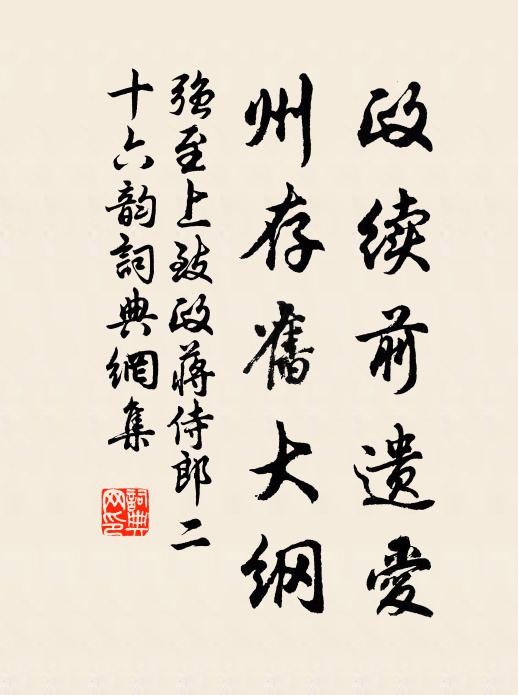 政续前遗爱
州存舊大纲
强至上致政蒋侍郎二
十六韵詞典網集
詞典网印